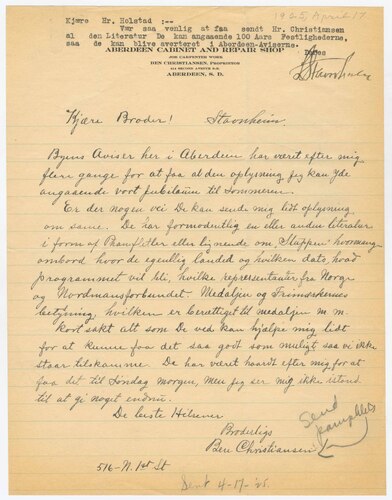 1925, April 17
Kjære Hr. Holstad :--
Vær saa venlig at faa sendt Hr. Christiansen
al den Literatur De kan angaaende 100 Aars Festlighederne,
saa de kan blive averteret i Aberdeen-Aviserne.
Deres
ABERDEEN CABINET AND REPAIR SHOP
JOB CARPENTER WORK
BEN CHRISTIANSEN, PROPRIETOR
ABERDEEN, S. D.
Kjære Broder! Stavnheim
Byens Aviser her i Aberdeen har været efter mig
flere gange for at faa al den oplysning jeg kan yde
angaaende vort Jubilæum til Sommeren.
Er der nogen vei De kan sende mig lidt oplysning
om samme. De har formodentlig en eller anden literatur
i form af Pamfletter eller lignende om "Sluppen" hvormange
ombord, hvor de egentlig landed og hvilken dato, hvad
programmet vil bli, hvilke representanter fra Norge
og Nordmansforbundet. Medaljen og Frimærkernes
betydning, hvilken er berettiget til medaljen m. m.
Kort sakt alt som De ved kan hjælpe mig lidt
for at kunne faa det saa godt som muligt saa vi ikke
staar tilskamme. De har været haardt efter mig for at
faa det til Søndag morgen, Men jeg ser mig ikke istand
til at gi noget endnu.
De beste Hilsener
Broderligs
Ben Christiansen
516-N. 1st St
Send
pamphlets
Sent 4-17-25.